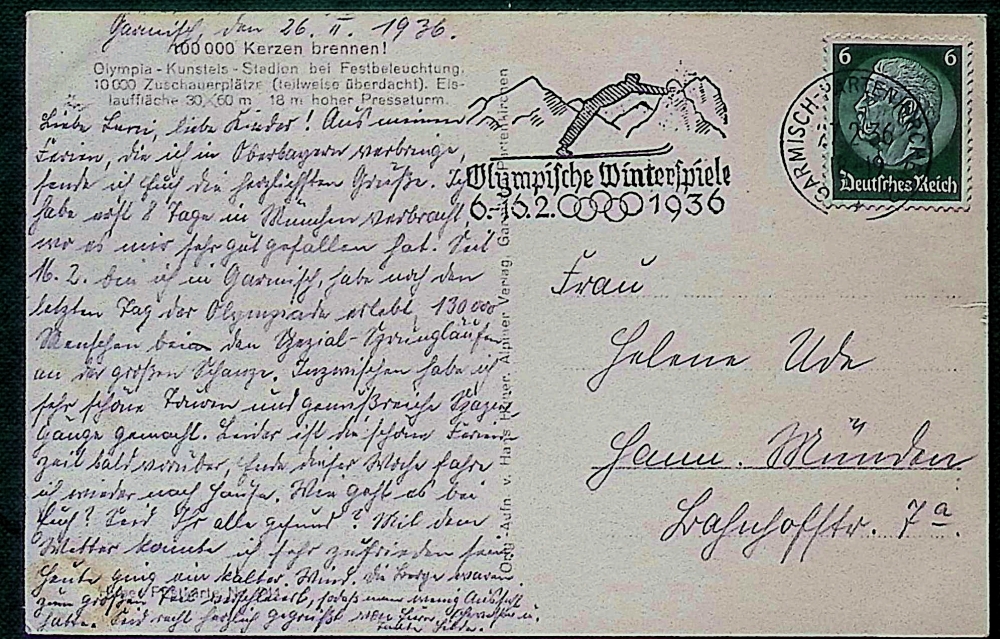 Garmisch, den 26. II. 1936.
100 000 Kerzen brennen!
Olympia-Kunsteis-Stadion bei Festbeleuchtung.
10 000 Zuschauerplätze (teilweise überdacht). Eis-
lauffläche 30×60 m 18 m hoher Presseturm.
Liebe liebe Kinder! Aus meinen
Ferien, die ich in Oberbayern verbringe,
sende ich Euch die herzlichsten Grüße. Ich
habe erst 8 Tage in München verbracht,
wo es mir sehr gut gefallen hat. Seit
16. 2. bin ich in Garmisch, habe noch den
letzten Tag der Olympiade erlebt, 130 000
Menschen beim den Spezial-Sprungläufen
an der großen Schanze. Inzwischen habe ich
sehr schöne Touren und genußreiche Spazier-
gänge gemacht. Leider ist die schöne Ferien-
zeit bald vorüber, Ende dieser Woche fahre
ich wieder nach Hause. Wie geht es bei
Euch? Seid Ihr alle gesund? Mit dem
Wetter konnte ich sehr zufrieden sein
heute ging ein kalter Wind, die Berge waren
zum großen Teil verschleiert, sodaß man wenig Aussicht
hatte. Seid recht herzlich gegrüßt von Eurer Schwester u.
Tante
Orig.-Aufn. v. Hans Huber, Alpiner Verlag, Garmisch-Partenkirchen
Olympische Winterspiele
6.-16.2. 1936
GARMISCH-PARTENKIRCHEN
2.36
6 6
Deutsches Reich
Frau
Helene Ude
Hann. Münden
Bahnhofstr. 7a